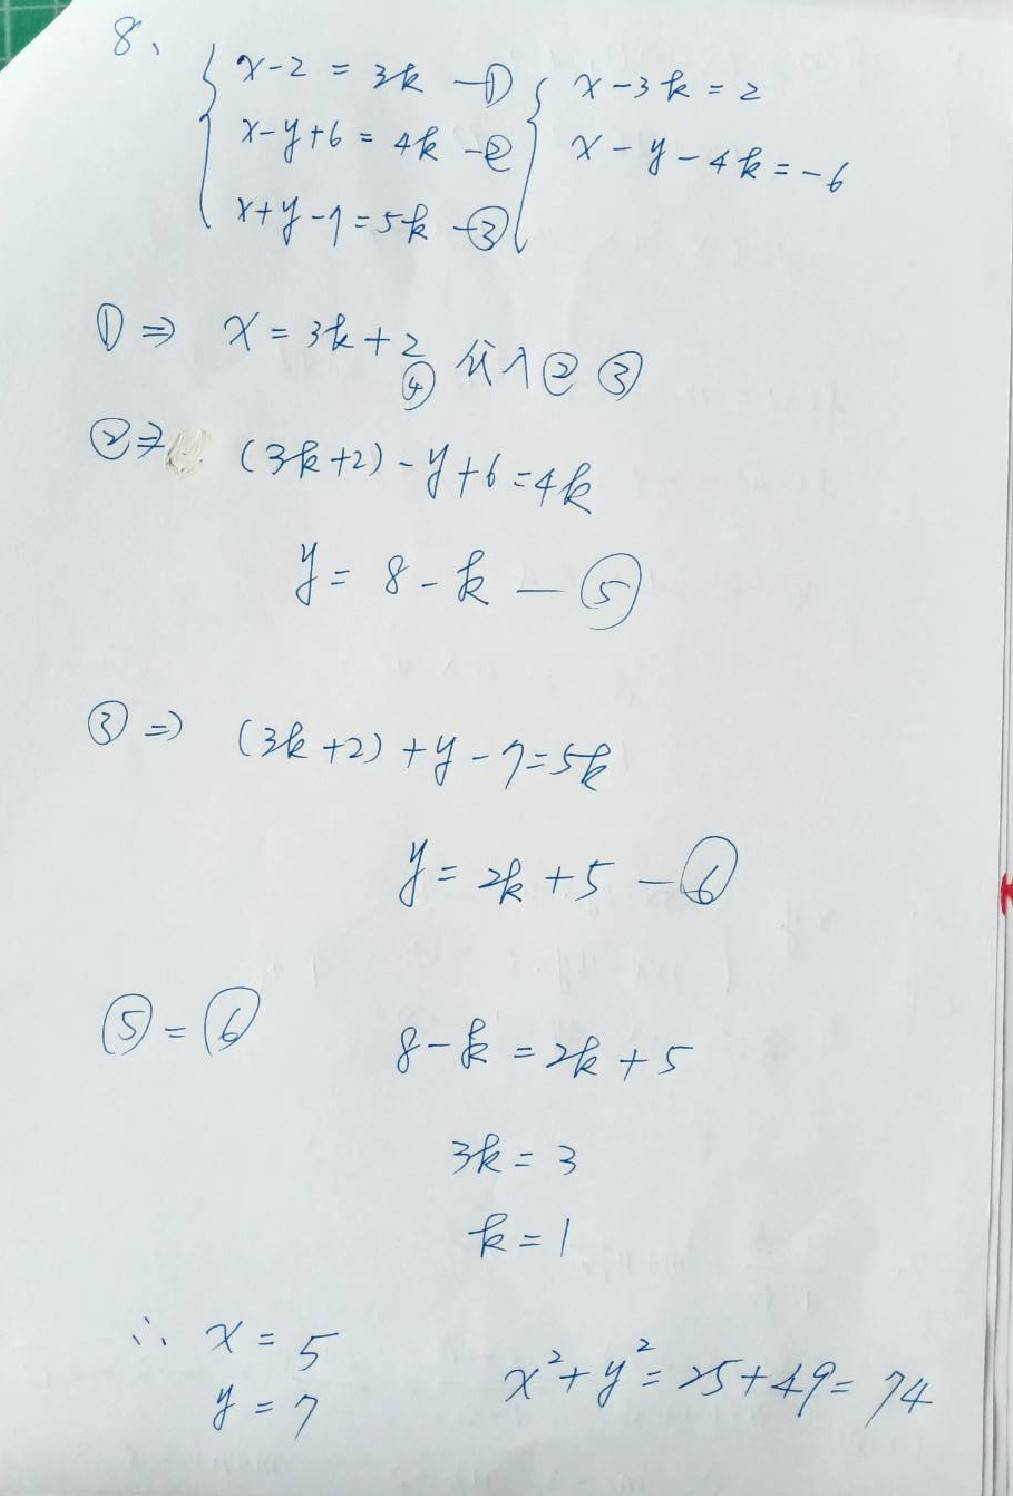 8、
x-2 = 3k —① x-3k = 2
x-y+6 = 4k -② x-y-4k = -6
x+y-7=5k -③
① ⇒ x = 3k+2 ④ 代入 ② ③
② ⇒ (3k+2)-y+6=4k
y = 8-k —⑤
③ ⇒ (3k+2)+y-7=5k
y = 2k+5 -⑥
⑤ = ⑥ 8-k = 2k+5
3k = 3
k = 1
∴ x = 5
y = 7 x²+y²=25+49=74